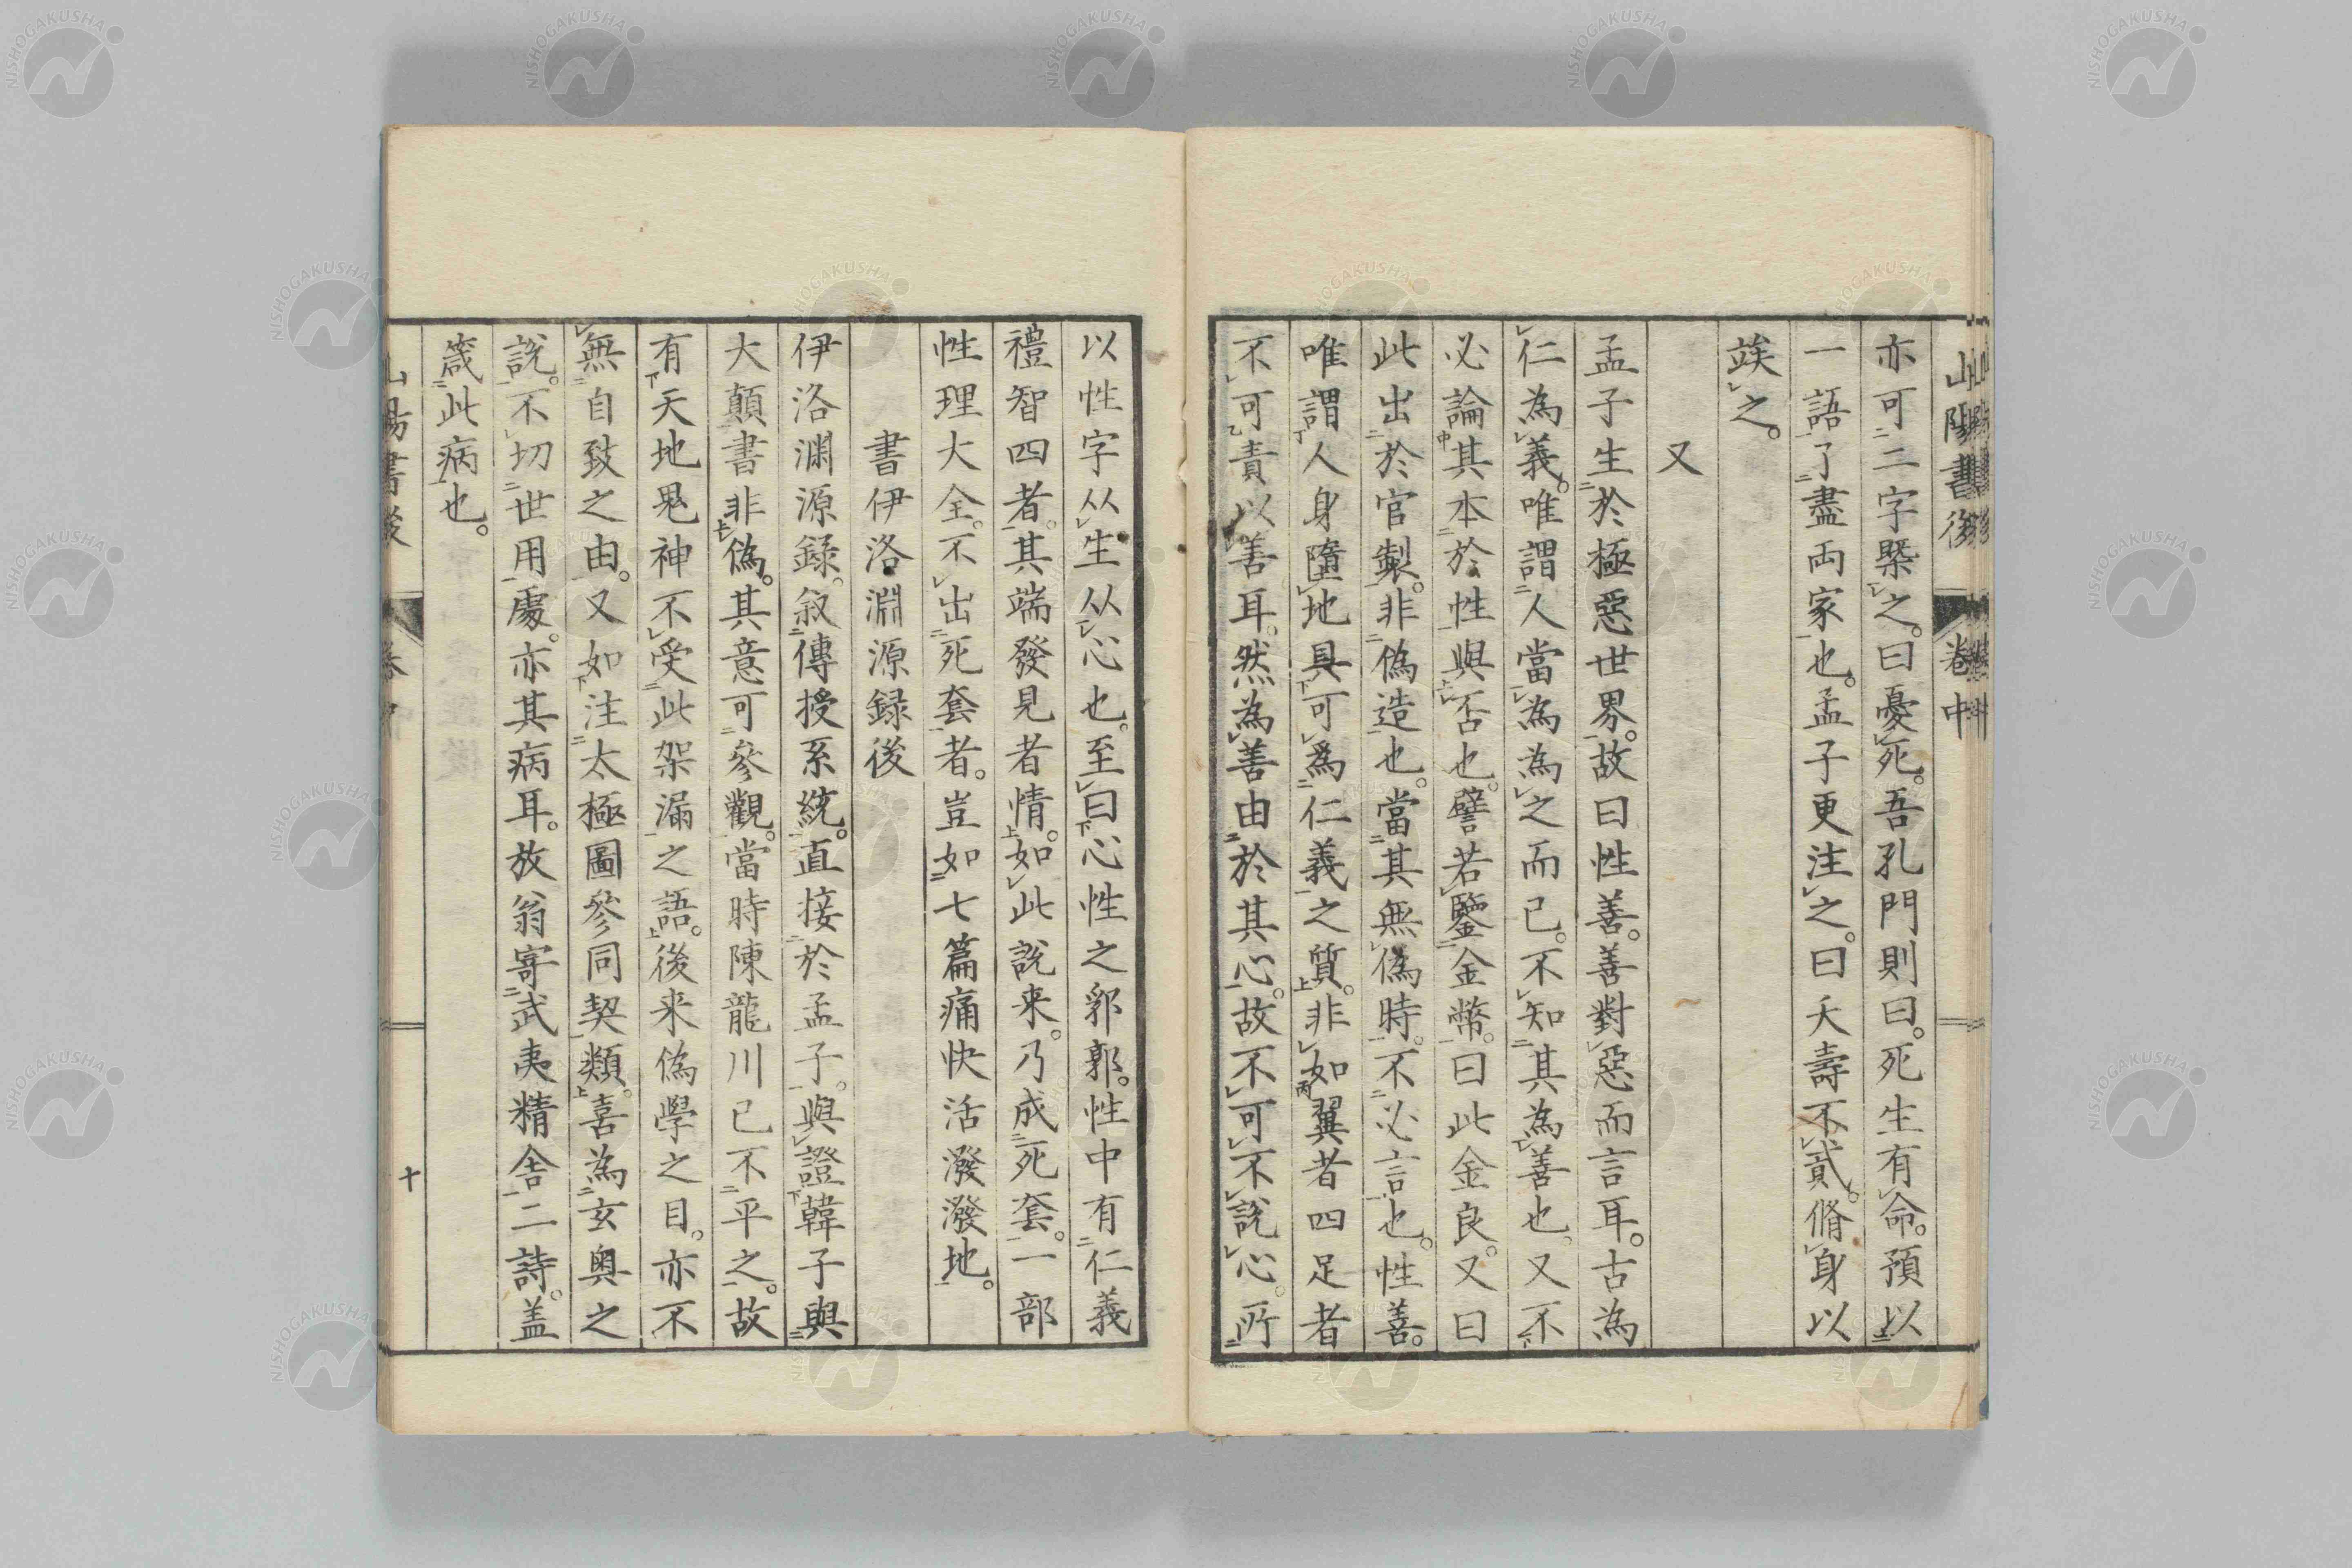 山陽書後 卷中
亦可二字槩之。曰憂死。吾孔門則曰。死生有命。預以
一語了盡両家也。孟子更注之。曰夭壽不貳。脩身以
竢之。
又
孟子生於極惡世界。故曰性善。善對惡而言耳。古為
仁為義。唯謂人當為為之而已。不知其為善也。又不
必論其本於性與否也。譬若鑒金幣。曰此金良。又曰
此出於官製。非偽造也。當其無偽時。不必言也。性善。
唯謂人身墮地具可爲仁義之質。非如翼者四足者
不可責以善耳。然為善由於其心。故不可不說心。所
以性字从生从心也。至曰心性之郛郭。性中有仁義
禮智四者。其端發見者情。如此說来。乃成死套。一部
性理大全。不出死套者。豈如七篇痛快活潑潑地。
書伊洛淵源録後
伊洛渊源録。叙傳授系統。直接於孟子。與證韓子與
大顛書非偽。其意可參觀。當時陳龍川已不平之。故
有天地鬼神不受此架漏之語。後来偽學之目。亦不
無自致之由。又如注太極圖參同契類。喜為玄奥之
說。不切世用處。亦其病耳。放翁寄武夷精舍二詩。盖
箴此病也。
山陽書後 卷中 十
NISHOGAKUSHA